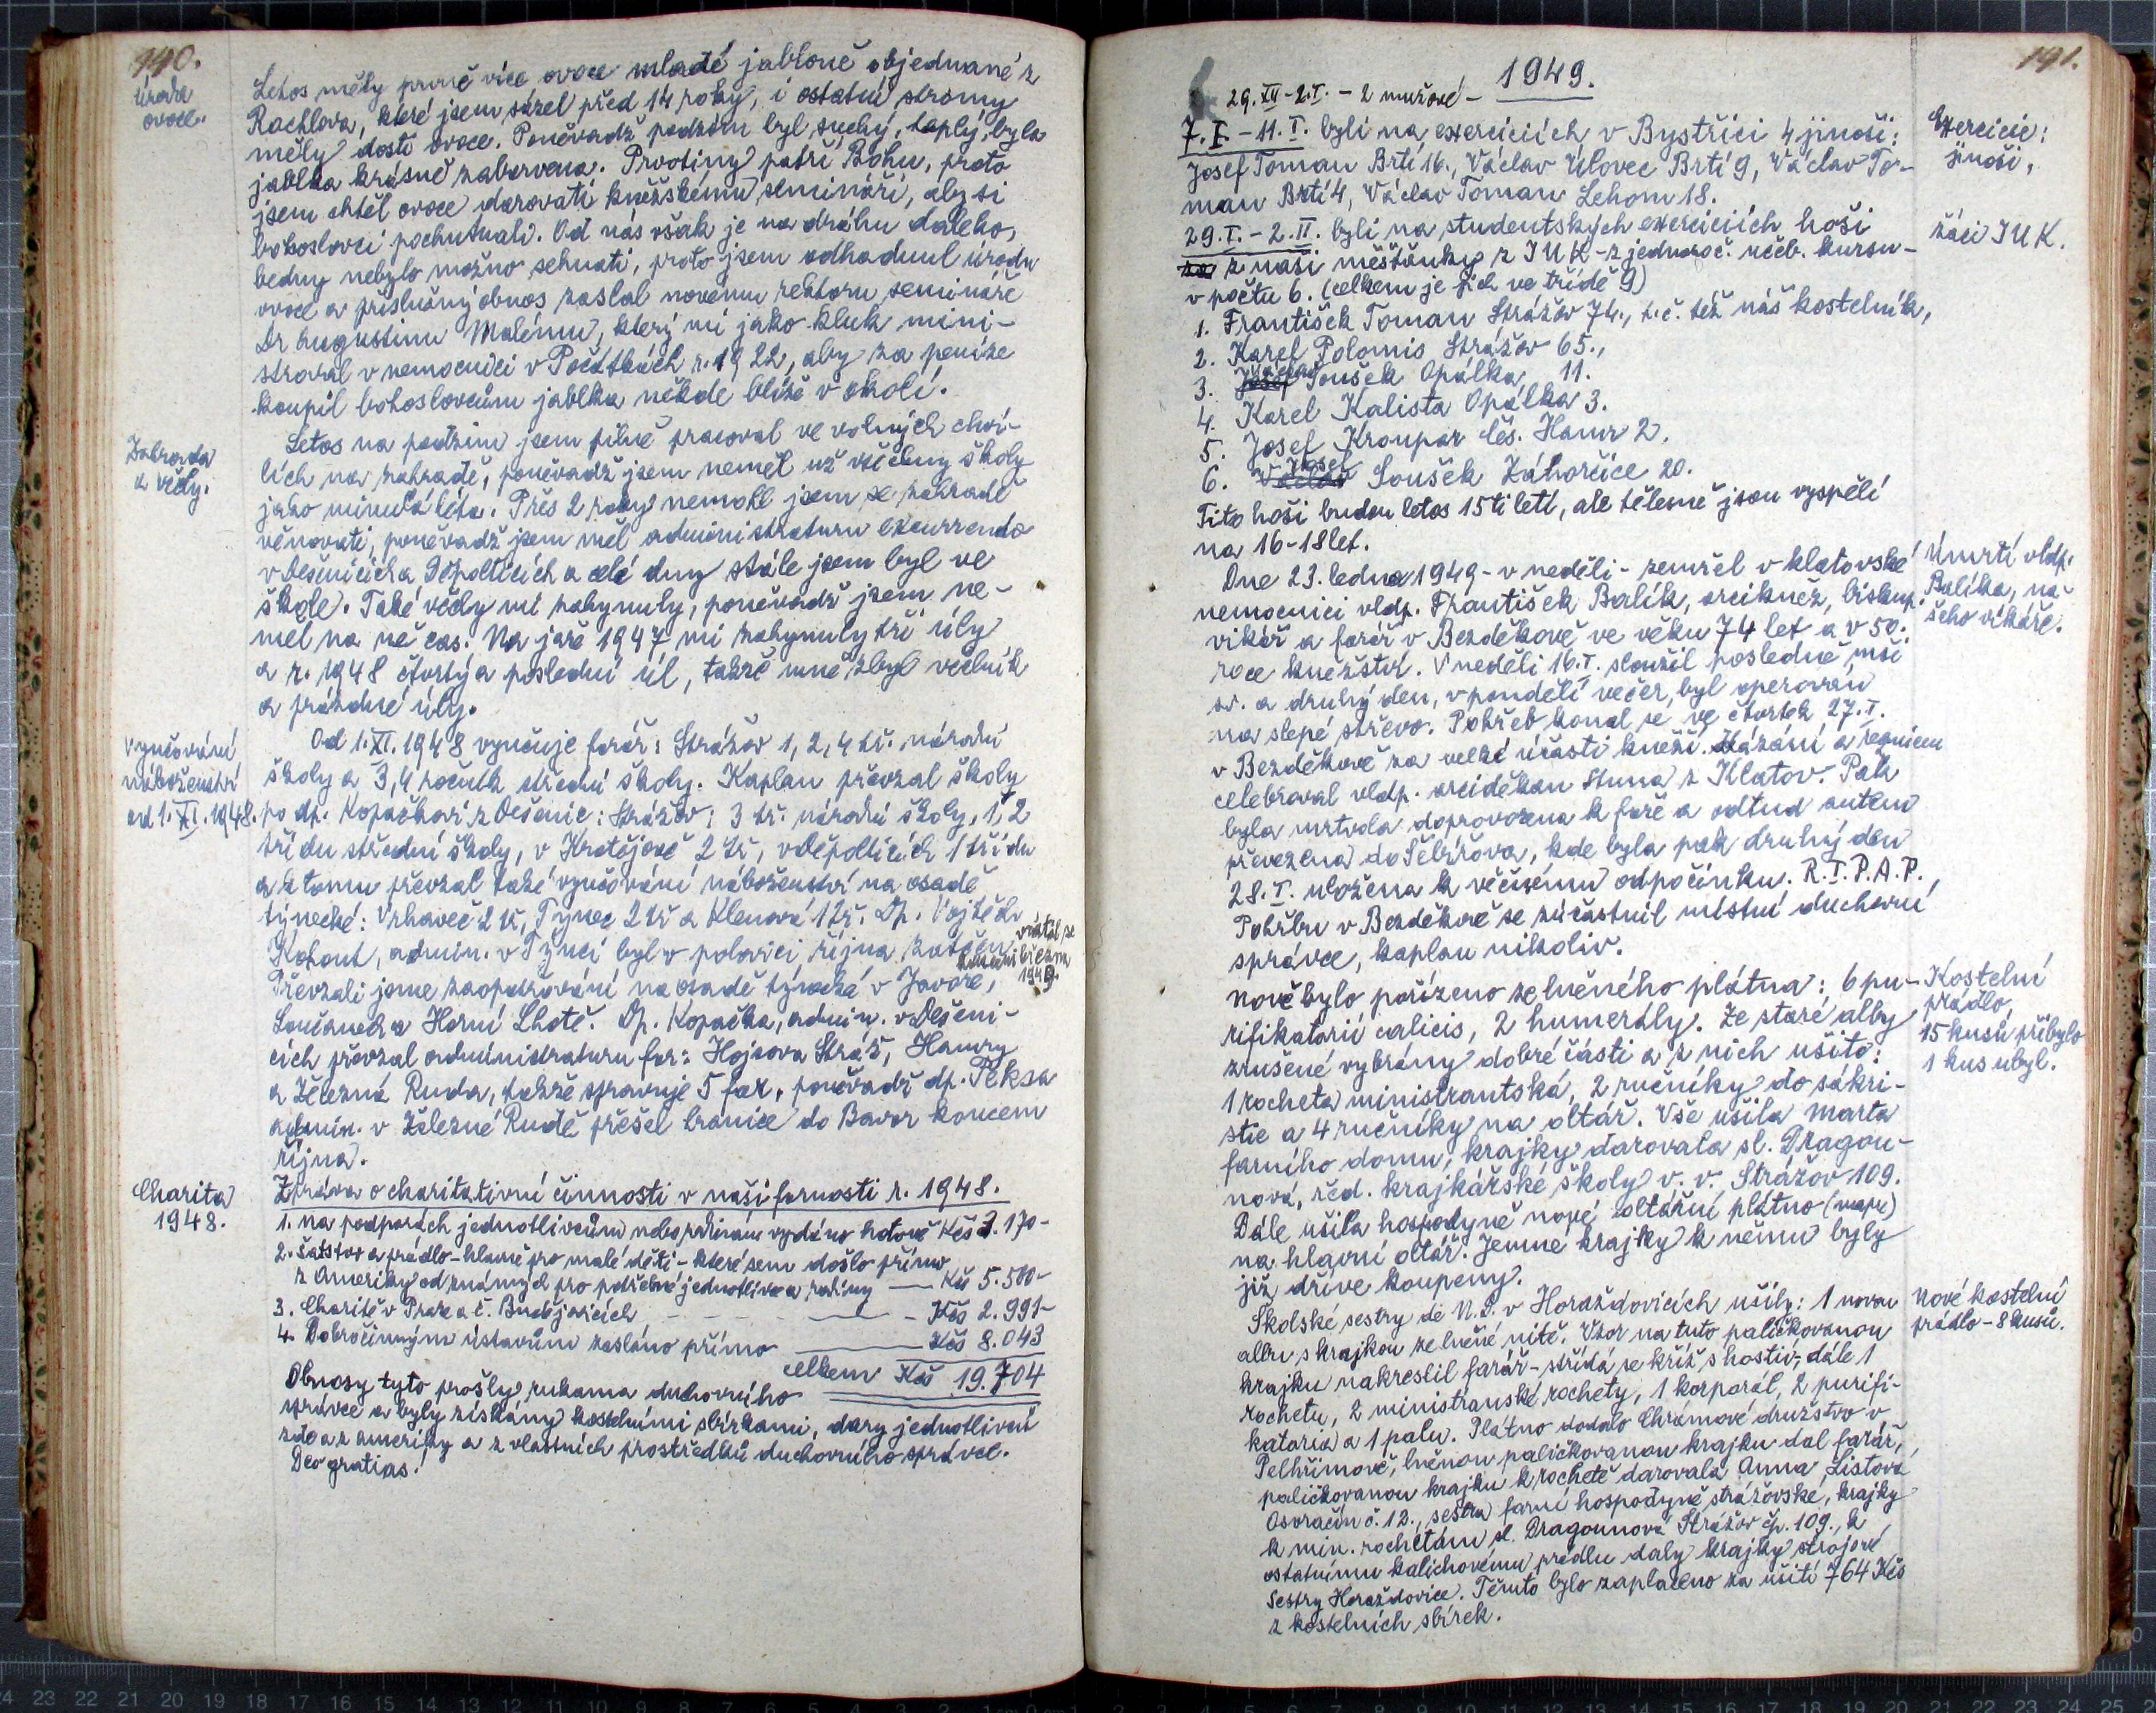 190.
Úroda
ovoce.
Letos měly prvně více ovoce mladé jabloně objednané z
Rachlova, které jsem sázel před 14 roky, i ostatní stromy
měly dosti ovoce. Poněvadž podzim byl suchý, teplý, byla
jablka krásně zabarvena. Prvotiny patří Bohu, proto
jsem chtěl ovoce darovati kněžskému semináři, aby si
bohoslovci pochutnali. Od nás však je na dráhu daleko,
bedny nebylo možno sehnati, proto jsem odhadnul úrodu
ovoce a příslušný obnos zaslal novému rektoru semináře
Dr Augustinu Malému, který mi jako kluk mini-
stroval v nemocnici v Počátkách r. 1922, aby za peníze
koupil bohoslovcům jablka někde blíže v okolí.
Zahrada
a včely.
Letos na podzim jsem pilně pracoval ve volných chví-
lích na zahradě, poněvadž jsem neměl už všechny školy
jako minulá léta. Přes 2 roky nemohl jsem se zahradě
věnovati, poněvadž jsem měl administraturu excurrendo
v Dešenicích a Děpolticích a celé dny stále jsem byl ve
škole. Také včely mi zahynuly, poněvadž jsem ne-
měl na ně čas. Na jaře 1947 mi zahynuly tři úly
a r. 1948 čtvrtý a poslední úl, takže mně zbyl včelník
a prázdné úly.
Vyučování
náboženství
od 1. XI. 1948.
Od 1. XI. 1948 vyučuje farář: Strážov 1, 2, 4 tř. národní
školy a 3, 4 ročník střední školy. Kaplan převzal školy
po dp. Kopačkovi z Dešenic: Strážov: 3 tř. národní školy, 1, 2
třídu střední školy, v Krotějově 2 tř, v Děpolticích 1 třídu
a k tomu převzal také vyučování náboženství na osadě
týnecké: Vrhaveč 2 tř, Týnec 2 tř a Klenová 1 tř. Dp. Vojtěch
Kohout, admin. v Týnci byl v polovici října zatčen. vrátil se
koncem března
1949.
Převzali jsme zaopatřování na osadě týnecké v Javoře,
Loučanech a Horní Lhotě. Dp. Kopačka, admin. v Dešeni-
cích převzal administraturu far: Hojsova Stráž, Hamry
a Železná Ruda, takže spravuje 5 far, poněvadž dp. Peksa
admin. v Železné Rudě přešel hranice do Bavor koncem
října.
Charita
1948.
Zpráva o charitativní činnosti v naší farnosti r. 1948.
1. Na podporách jednotlivcům nebo rodinám vydáno hotově Kčs 3.170-
2. šatstvo a prádlo - hlavně pro malé děti - které sem došlo přímo
z Ameriky od známých pro potřebné jednotlivce a rodiny — Kčs 5.500-
3. Charitě v Praze a Č. Budějovicích — Kčs 2.991-
4. Dobročinným ústavům zasláno přímo — Kčs 8.043
celkem Kčs 19.704
Obnosy tyto prošly rukama duchovního
správce a byly získány kostelními sbírkami, dary jednotlivců
zde a z Ameriky a z vlastních prostředků duchovního správce.
Deo gratias!
191.
1949.
29. XII - 2. I. - 2 mužové -
7. I. - 11. I. byli na exerciciích v Bystřici 4 jinoši:
Josef Toman Brtí 16., Václav Úlovec Brtí 9, Václav To-
man Brtí 4, Václav Toman Lehom 18.
Exercicie:
jinoši,
29. I. - 2. II. byli na studentských exerciciích hoši
z naší měšťanky z JUK - z jednoroč. učeb. kursu -
v počtu 6. (celkem je jich ve třídě 9)
žáci JUK.
1. František Toman Strážov 74., t. č. též náš kostelník,
2. Karel Polomis Strážov 65.,
3. Josef Václav Toušek Opálka 11.
4. Karel Kalista Opálka 3.
5. Josef Kroupar Čes. Hamr 2.
6. Václav Josef Soušek Záhorčice 20.
Tito hoši budou letos 15 ti letí, ale tělesně jsou vyspělí
na 16-18 let.
Dne 23. ledna 1949 - v neděli - zemřel v klatovské
nemocnici vldp. František Balík, arcikněz, biskup.
vikář a farář v Bezděkově ve věku 74 let a v 50.
roce kněžství. V neděli 16. I. sloužil posledně mši
sv. a druhý den, v pondělí večer, byl operován
na slepé střevo. Pohřeb konal se ve čtvrtek 27. I.
v Bezděkově za velké účasti kněží. Kázání a requiem
celebroval vldp. arciděkan Stuna z Klatov. Pak
byla mrtvola doprovozena k faře a odtud autem
převezena do Čebřova, kde byla pak druhý den
28. I. uložena k věčnému odpočinku. R. I. P. A. P.
Pohřbu v Bezděkově se zúčastnil místní duchovní
správce, kaplan nikoliv.
Úmrtí vldp.
Balíka, na-
šeho vikáře.
Nově bylo pořízeno ze lněného plátna: 6 pu-
rifikatorií calicis, 2 humerály. Ze staré alby
zrušené vybrány dobré části a z nich ušito:
1 rocheta ministrantská, 2 ručníky do sákri-
stie a 4 ručníky na oltář. Vše ušila Marta
farního domu, krajky darovala sl. Dragou-
nová, řed. krajkářské školy v. v. Strážov 109.
Dále ušila hospodyně nové oltářní plátno (mapu)
na hlavní oltář. Jemné krajky k němu byly
již dříve koupeny.
Kostelní
prádlo,
15 kusů přibylo
1 kus ubyl.
Školské sestry de N. D. v Horažďovicích ušily: 1 novou
albu s krajkou ze lněné nitě. Vzor na tuto paličkovanou
krajku nakreslil farář - střídá se kříž s hostií, dále 1
rochetu, 2 ministranské rochety, 1 korporál, 2 purifi-
katoria a 1 palu. Plátno dodalo Chrámové družstvo v
Pelhřimově, lněnou paličkovanou krajku dal farář,
paličkovanou krajku k rochetě darovala Anna Listová
Osvračín č. 12., sestra farní hospodyně strážovské, krajky
k min. rochetám sl. Dragounová Strážov čp. 109., k
ostatnímu kalichovému prádlu daly krajky strojové
Sestry Horažďovice. Těmto bylo zaplaceno za ušití 764 Kčs
z kostelních sbírek.
nové kostelní
prádlo - 8 kusů.